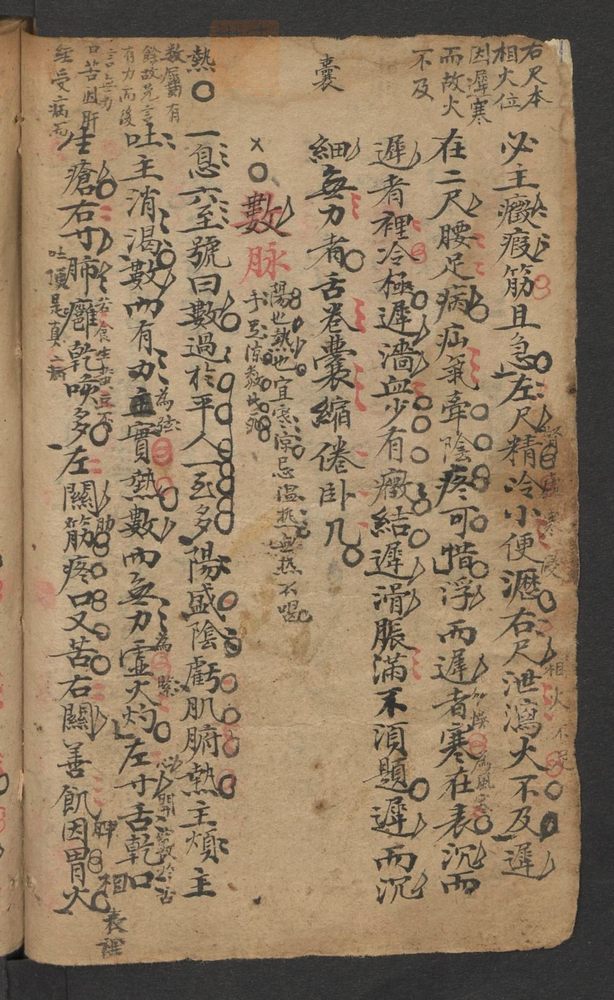 右尺本
相火位
因遲寒
而故火
不及
必主癥瘕筋且急左尺精冷小便瀝右尺泄瀉火不及遲
相火不足
在二尺腰足病疝氣牽陰疼可惜浮而遲者寒在表沉而
為風寒
遲者裡冷極遲濇血少有癥結遲滑脹滿不須題遲而沉
細無力者舌卷囊縮倦卧几
囊
數脉
陽也熱也宜寒涼忌溫
熱
一息六至號曰數過於平人一至多陽盛陰虧肌腑熱主煩主
數脈有
餘故先言
有力而後
言無力
吐主消渴數而有力並實熱數而無力虛火灼左寸舌乾口
為弦
為緊
口苦因肝
經受病而
生瘡右寸肺癰乾喚多左關筋疼口又苦右關善飢因胃火
吐膿是真病
脾
相
表裡